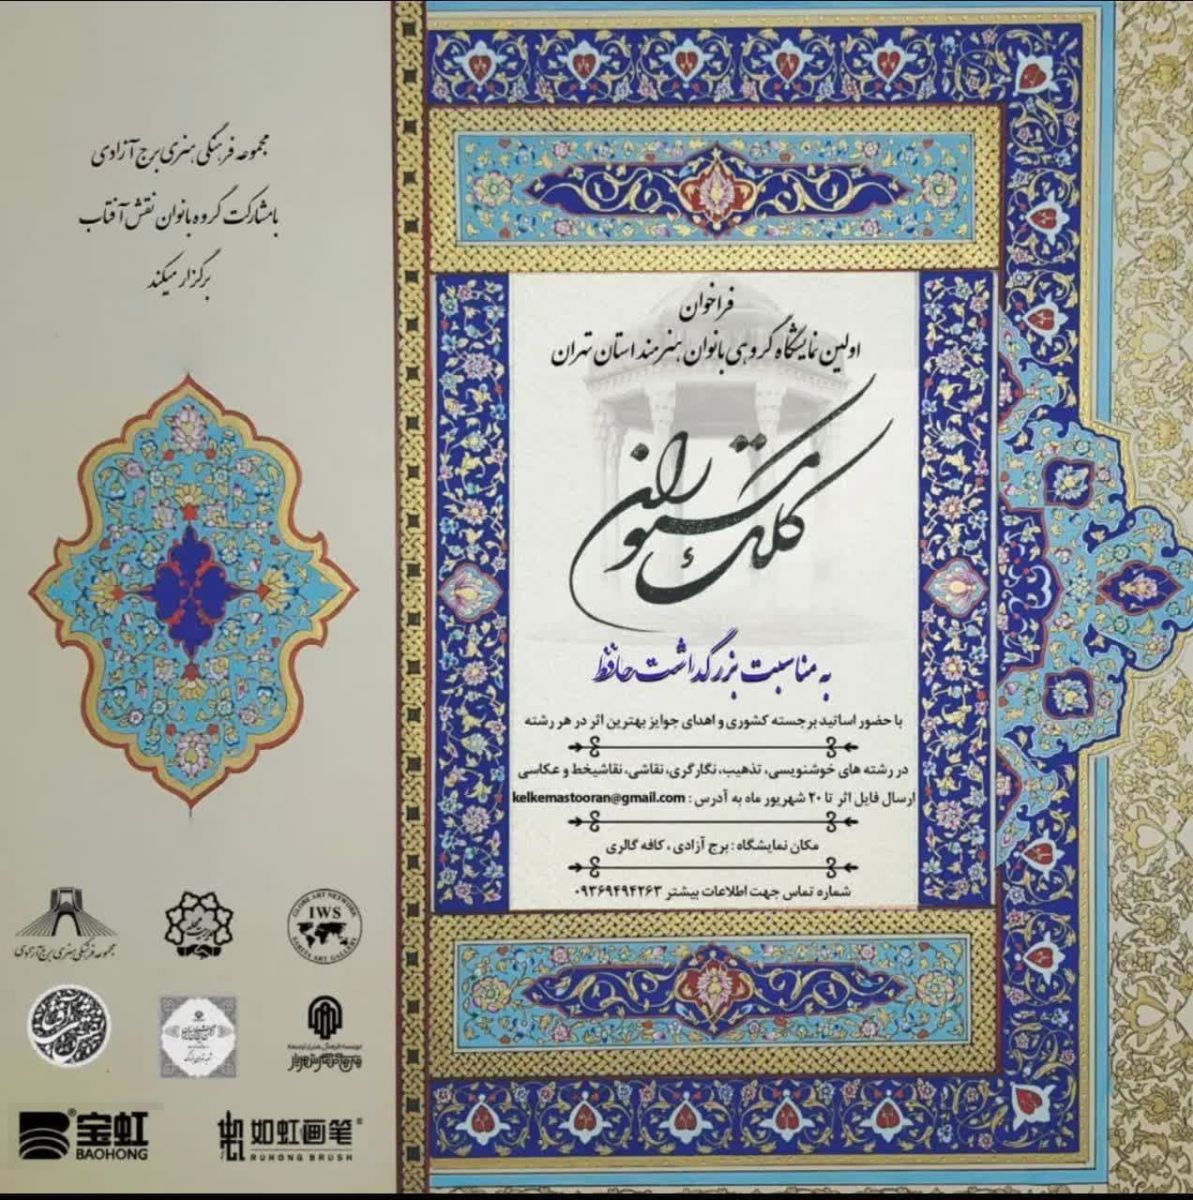 مجموعه فرهنگی هنری برج آزادی
با مشارکت گروه بانوان نقش آفتاب
برگزار میکند
فراخوان
اولین نمایشگاه گروهی بانوان هنرمند استان تهران
کلک مستوران
به مناسبت بزرگداشت حافظ
با حضور اساتید برجسته کشوری و اهدای جوایز بهترین اثر در هر رشته
در رشته های خوشنویسی، تذهیب، نگارگری، نقاشی، نقاشیخط و عکاسی
ارسال فایل اثر تا ۲۰ شهریور ماه به آدرس : kelkemastooran@gmail.com
مکان نمایشگاه : برج آزادی ، کافه گالری
شماره تماس جهت اطلاعات بیشتر ۰۹۳۶۹۴۹۴۲۶۳
مجموعه فرهنگی هنری برج آزادی
IWS
宝虹
BAOHONG
如虹画笔
RUHONG BRUSH